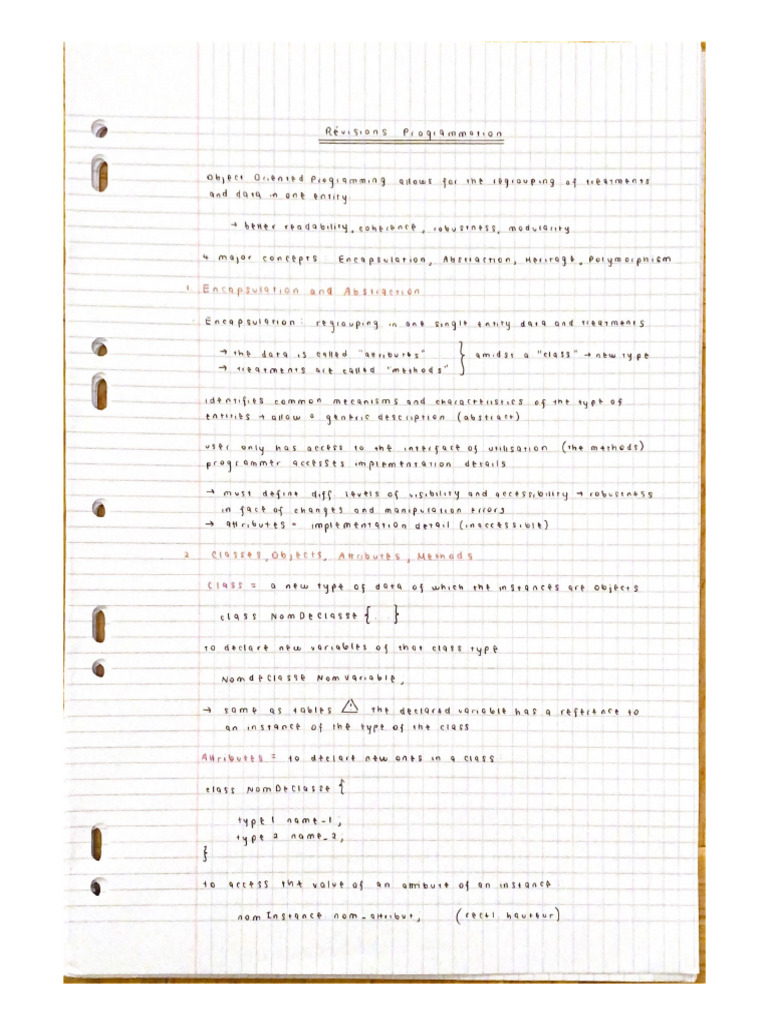 Révisions Programmation
Object Oriented Programming allows for the regrouping of treatments
and data in one entity.
→ better readability, coherence, robustness, modularity
4 major concepts : Encapsulation, Abstraction, Heritage, Polymorphism
1. Encapsulation and Abstraction
Encapsulation : regrouping in one single entity data and treatments
→ the data is called "attributes" } amidst a "class" → new type
→ treatments are called "methods"
identifies common mecanisms and characteristics of the type of
entities → allow = generic description (abstract)
user only has access to the interface of utilisation (the methods)
programmer accesses implementation details
→ must define diff. levels of visibility and accessibility → robustness
in fact of changes and manipulation errors
→ attributes = implementation detail (inaccessible)
2. Classes, Objects, Attributes, Methods
Class = a new type of data of which the instances are objects
class NomDeClasse {...}
to declare new variables of that class type
NomdeClasse NomVariable,
→ same as tables ⚠ the declared variable has a reference to
an instance of the type of the class
Attributes = to declare new ones in a class
class NomDeClasse {
type1 name_1;
type 2 name_2;
}
to access the value of an attribute of an instance
nomInstance nom_attribut, (rect1 hauteur)